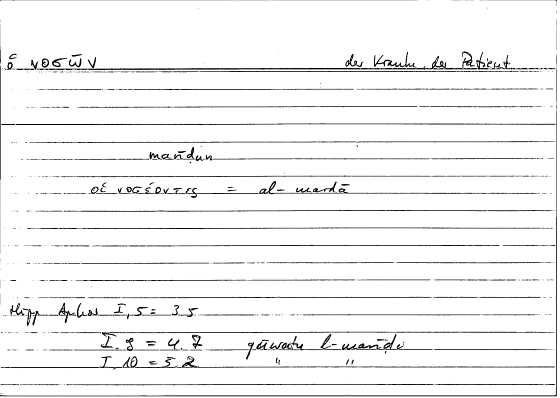 ὁ νοσῶν der Kranke, der Patient
marīḍun
οἱ νοσέοντες = al-marḍā
Hipp Aphor I, 5 = 3.5
I. 9 = 4.7 qūwatu l-marīḍi
I. 10 = 5.2 " "